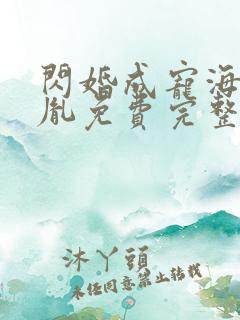 閃婚成寵海
胤免費完整
沐丫頭
未经同意禁止转载